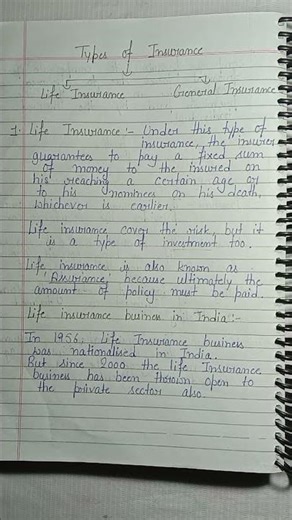 Types of Insurance
Life Insurance General Insurance
1. Life Insurance :- Under this type of
insurance, the insurer
guarantees to pay a fixed sum
of money to the insured on
his reaching a certain age or
to his nominees on his death,
whichever is earlier.
Life insurance cover the risk, but it
is a type of investment too.
Life insurance is also known as
'Assurance' because ultimately the
amount of policy must be paid.
Life insurance business in India :-
In 1956, Life Insurance business
was nationalised in India.
But since 2000 the life Insurance
business has been thrown open to
the private sector also.